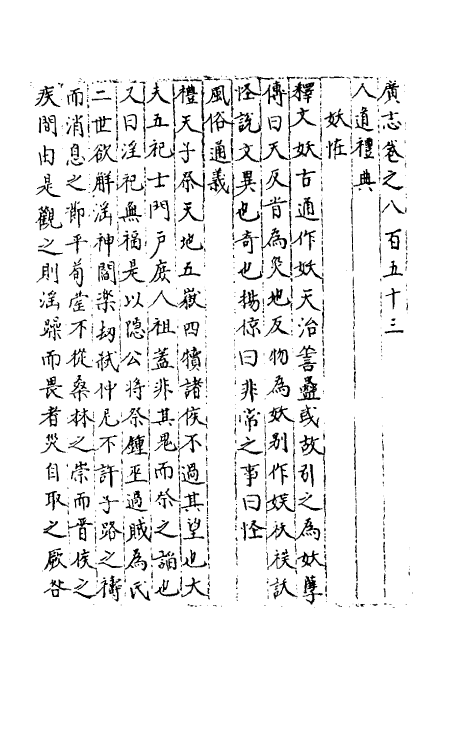 廣志卷之八百五十三
人道禮典
妖怪
釋文妖古通作妖天治善蠱或故引之為妖孽
傳曰天反昔為災地反物為妖别作䄏祅祆訞
怪說文異也奇也揚倞曰非常之事曰怪
風俗通義
禮天子祭天地五嶽四犢諸侯不過其望也大
夫五祀士門戶庶人祖蓋非其鬼而祭之諂也
又曰淫祀無福是以隐公將祭鍾巫遇賊為氏
二世欲解淫神閻楽刼弑仲尼不許子路之禱
而消息之節平荀罃不從桑林之崇而晋侯之
疾間由是觀之則淫躁而畏者災自取之厥咎